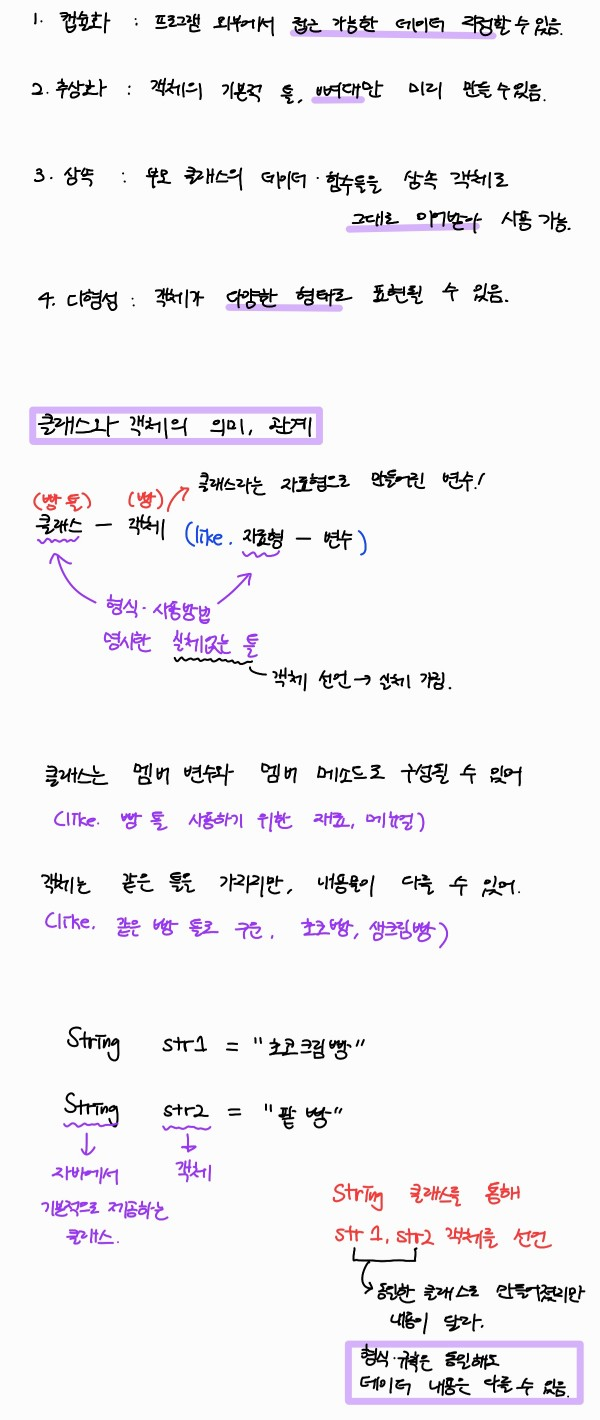 1. 캡슐화 : 프로그램 외부에서 접근 가능한 데이터 걱정할 수 있음.
2. 추상화 : 객체의 기본적 틀, 뼈대만 미리 만들 수 있음.
3. 상속 : 부모 클래스의 데이터·함수들을 상속 객체로
그대로 이어받아 사용 가능.
4. 다형성 : 객체가 다양한 형태로 표현될 수 있음.
클래스와 객체의 의미, 관계
클래스라는 자료형으로 만들어진 변수!
(빵 틀) (빵)
클래스 - 객체 (like. 자료형 - 변수)
형식·사용방법
명시한 실체없는 틀
객체 선언 → 실체 가짐.
클래스는 멤버 변수와 멤버 메소드로 구성될 수 있어
(like. 빵 틀 사용하기 위한 재료, 메뉴얼)
객체는 같은 틀을 가지지만, 내용물이 다를 수 있어.
(like. 같은 빵 틀로 구운, 초코빵, 생크림빵)
String str1 = "초코크림빵"
String str2 = "팥 빵"
자바에서 객체
기본적으로 제공하는
클래스.
String 클래스를 통해
str 1, str2 객체를 선언
동일한 클래스로 만들어졌지만
내용이 달라.
형식·규칙은 동일해도
데이터 내용은 다를 수 있음.